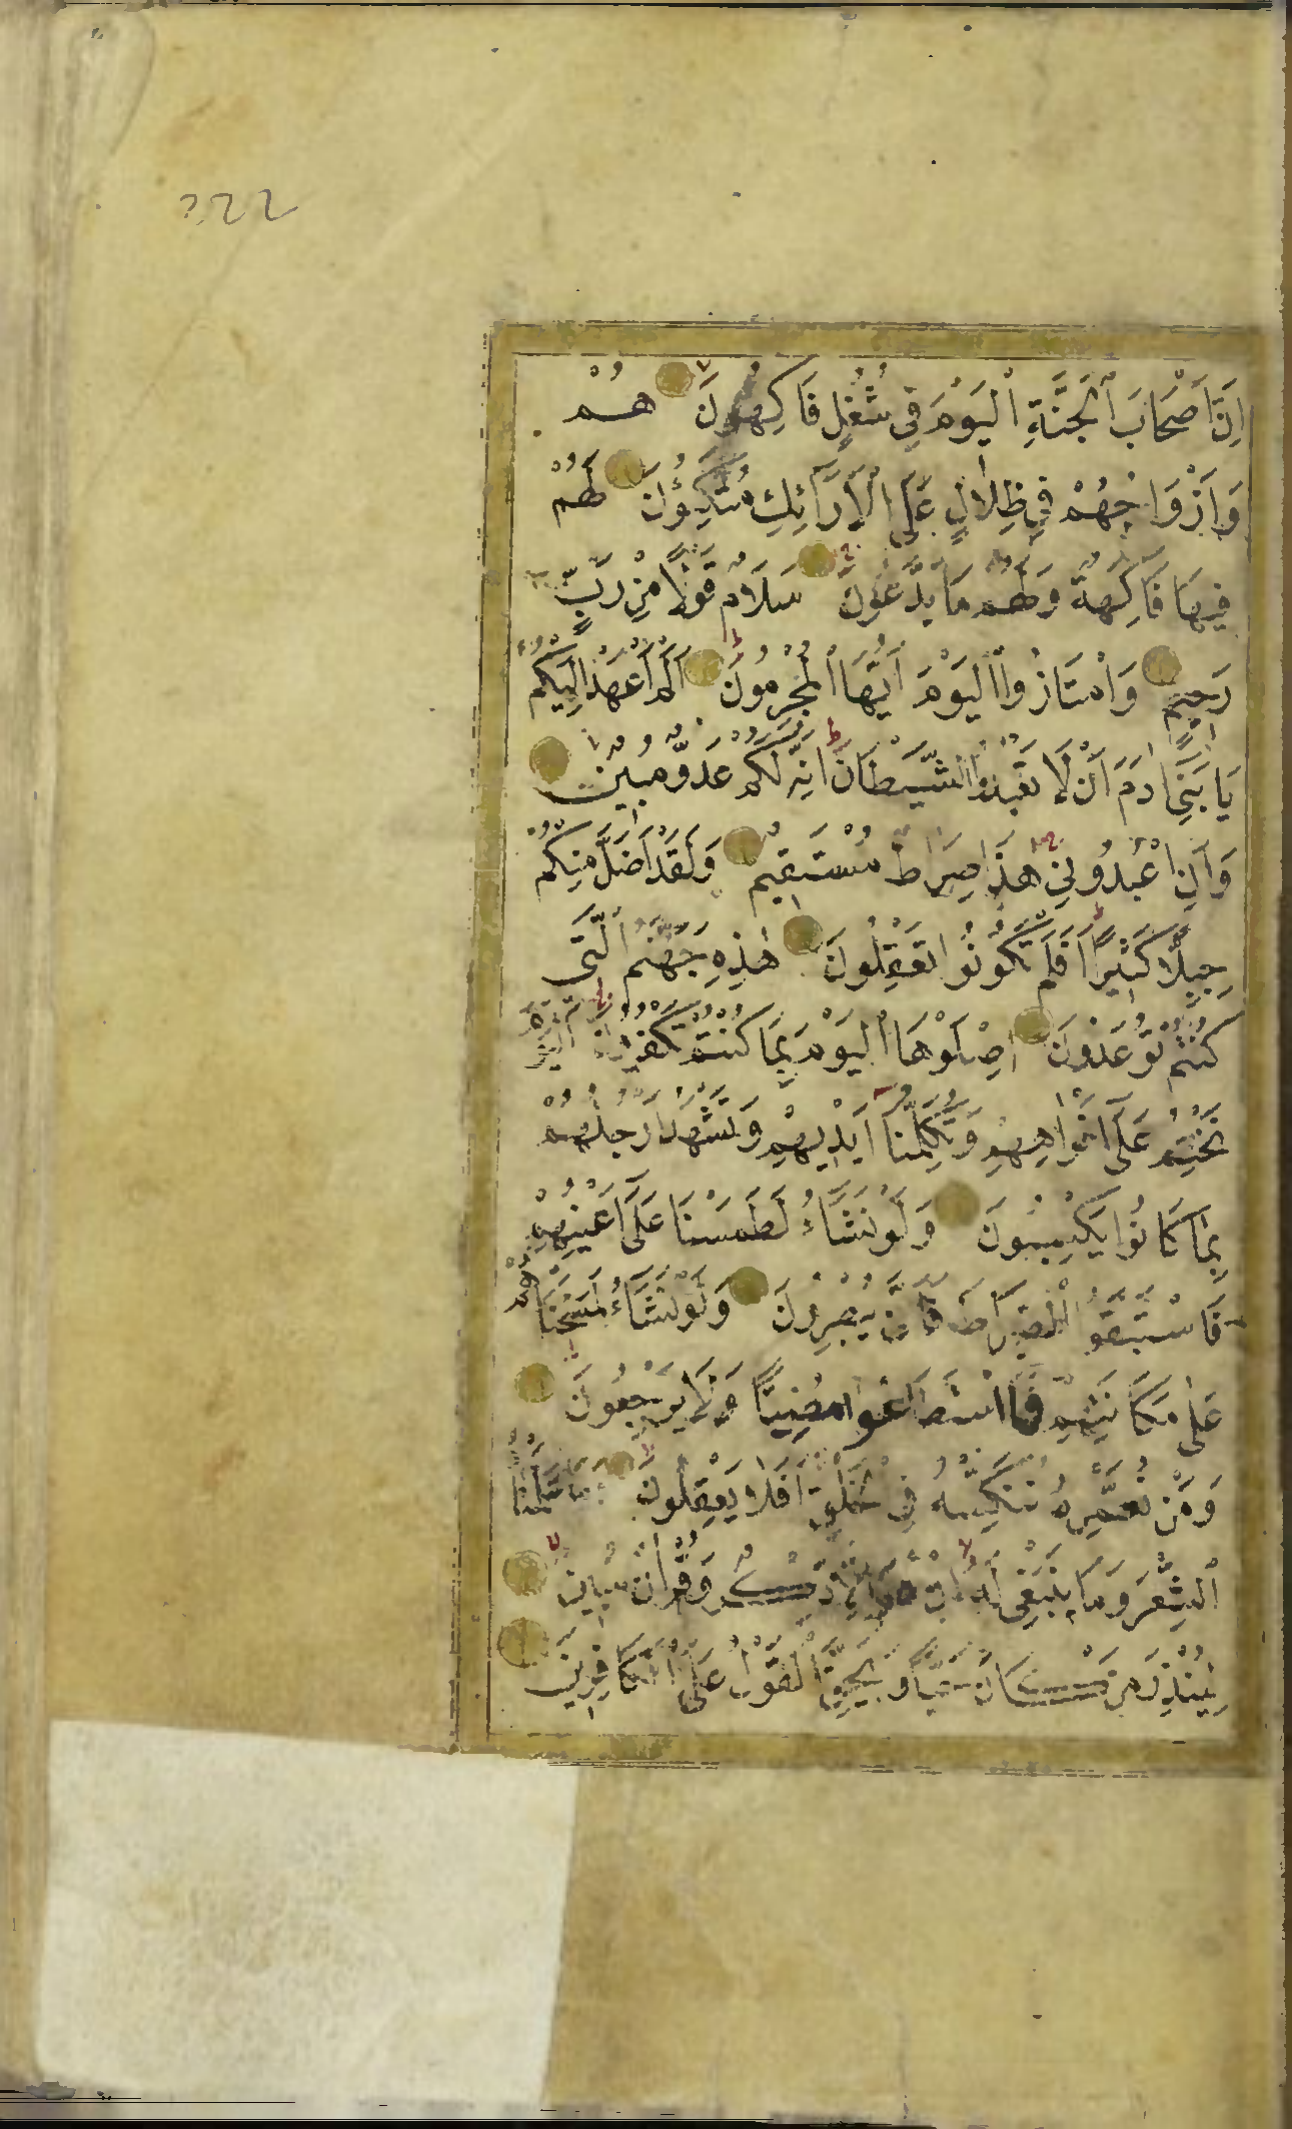 ٢٢٢
اِنَّ اَصْحَابَ الْجَنَّةِ الْيَوْمَ فِي شُغُلٍ فَاكِهُونَ هُمْ
وَاَزْوَاجُهُمْ فِي ظِلَالٍ عَلَى الْاَرَآئِكِ مُتَّكِؤُنَ لَهُمْ
فِيهَا فَاكِهَةٌ وَلَهُمْ مَا يَدَّعُونَ سَلَامٌ قَوْلًا مِنْ رَبٍّ
رَحِيمٍ وَامْتَازُوا الْيَوْمَ اَيُّهَا الْمُجْرِمُونَ اَلَمْ اَعْهَدْ اِلَيْكُمْ
يَا بَنِي اٰدَمَ اَنْ لَا تَعْبُدُوا الشَّيْطَانَ اِنَّهُ لَكُمْ عَدُوٌّ مُبِينٌ
وَاَنِ اعْبُدُونِي هٰذَا صِرَاطٌ مُسْتَقِيمٌ وَلَقَدْ اَضَلَّ مِنْكُمْ
جِبِلًّا كَثِيرًا اَفَلَمْ تَكُونُوا تَعْقِلُونَ هٰذِهِ جَهَنَّمُ الَّتِي
كُنْتُمْ تُوعَدُونَ اِصْلَوْهَا الْيَوْمَ بِمَا كُنْتُمْ تَكْفُرُونَ اَلْيَوْمَ
نَخْتِمُ عَلَى اَفْوَاهِهِمْ وَتُكَلِّمُنَا اَيْدِيهِمْ وَتَشْهَدُ اَرْجُلُهُمْ
بِمَا كَانُوا يَكْسِبُونَ وَلَوْ نَشَآءُ لَطَمَسْنَا عَلَى اَعْيُنِهِمْ
فَاسْتَبَقُوا الصِّرَاطَ فَاَنّٰى يُبْصِرُونَ وَلَوْ نَشَآءُ لَمَسَخْنَاهُمْ
عَلَى مَكَانَتِهِمْ فَمَا اسْتَطَاعُوا مُضِيًّا وَلَا يَرْجِعُونَ
وَمَنْ نُعَمِّرْهُ نُنَكِّسْهُ فِي الْخَلْقِ اَفَلَا يَعْقِلُونَ وَمَا عَلَّمْنَاهُ
الشِّعْرَ وَمَا يَنْبَغِي لَهُ اِنْ هُوَ اِلَّا ذِكْرٌ وَقُرْاٰنٌ مُبِينٌ
لِيُنْذِرَ مَنْ كَانَ حَيًّا وَيَحِقَّ الْقَوْلُ عَلَى الْكَافِرِينَ